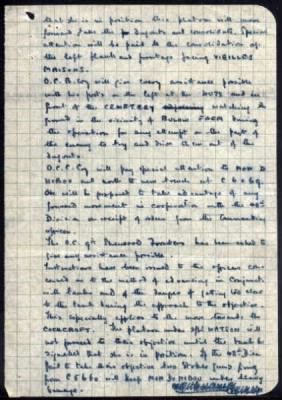 that she is in position this platoon will move
forward take the dugouts and consolidate. Special
attention will be paid to the consolidation of
the left flank and frontage facing VIEILLES
MAISONS.
O.C. B. Coy will give every assistance possible
with his posts on the left at the HUTS and in
front of the CEMETERY watching the
ground in the vicinity of BULOW FARM during
the operation for any attempt on the part of
the enemy to try and drive them out of the
dugouts.
O.C. C. Coy will pay special attention to MON DU
HIBOU and north to new trench at C 6
He will be prepared to take advantage of any
forward movement in cooperation with the 48th
Division on receipt of orders from the Commanding
officer.
The O.C. 9th Sherwood Foresters has been asked to
give any assistance possible.
Instructions have been issued to the officers con-
cerned as to the method of advancing in conjunction
with tanks and of the dangers of getting too close
to the tank during the approach to the objective.
This especially applies to the move towards the
COCKCROFT. The platoon under WATSON will
not proceed to their objective until the tank has
signalled that she is in position. If the 48th Div
fail to take their objective two Stokes guns firing
from C 5 will keep MON DU HIBOU under heavy
barrage.